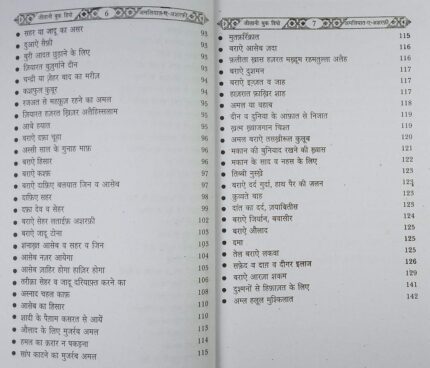 जीलानी बुक डिपो 6 अमलियात-ए-अशरफ़ी
सहर या जादू का असर 93
दुआऐ सैफ़ी 93
बुरी आदत छुड़ाने के लिए 94
ज़ियारत बुज़ुर्गाने दीन 94
चन्द्री या ज़ेहर बाद का मरीज़ 94
कशफ़ुल कुबूर 94
रजअत से महफ़ूज़ रहने का अमल 94
ज़ियारत हज़रत ख़िज़र अलैहिस्सलाम 94
आबे हयात 95
बराऐ दफ़ा चूहा 95
अस्सी साल के गुनाह माफ़ 96
बराऐ हिसार 96
बराऐ कशफ़ 96
बराऐ दाफ़िए बलयात जिन व आसेब 97
दाफ़िए सहर 98
दफ़ा देव व सेहर 99
बराऐ सेहर लताईफ़ अशरफ़ी 102
बराऐ जादू टोना 105
शनाख़्त आसेब व सहर व जिन 105
आसेब नज़र आयेगा 105
आसेब ज़ाहिर होगा हाज़िर होगा 105
तरीक़ा सेहर व जादू दरियाफ़्त करने का 106
अस्नाद चहल काफ़ 108
आसेब का हिसार 110
शादी के पैग़ाम कसरत से आयें 110
औलाद के लिए मुजर्रब अमल 114
हमल का क़रार न पकड़ना 114
सांप काटने का मुजर्रब अमल 115
जीलानी बुक डिपो 7 अमलियात-ए-अशरफ़ी
मुतफ़र्रिक़ात 115
बराऐ आसेब ज़दा 116
फ़लीता ख़ास हज़रत मख़्दूम रहमतुल्ला अलैह 116
बराऐ दुशमन 117
बराऐ इज़्ज़त व जाह 117
हाज़रात फ़ाख़िर शाह 118
अमल या वहाब 118
दीन व दुनिया के आफ़ात से निजात 119
ख़त्म ख़्वाजगान चिश्त 119
अमल बराऐ तसख़ीरुल कुलूब 120
मकान की बुनियाद रखने की ख़्वास 121
मकान के साद व नहस के लिए 122
तिब्बी नुस्ख़े 123
बराऐ दर्द गुर्दा, हाथ पैर की जलन 123
कुव्वते बाह 123
दांत का दर्द, ज़याबितीस 123
बराऐ जिर्यान, बवासीर 124
बराऐ औलाद 125
दमा 125
तेल बराऐ लकवा 125
सफ़ेद व दाग़ व दीगर इलाज 126
बराऐ आरज़ा शकम 129
दुश्मनों से हिफ़ाज़त के लिए 141
अमल हलूल मुश्किलात 142